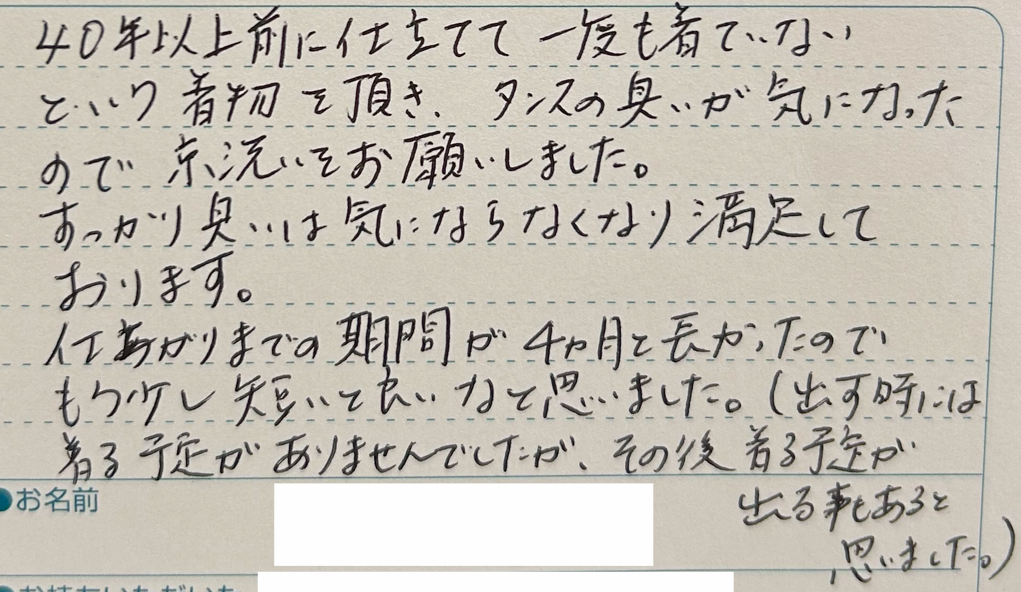 40年以上前に仕立てて一度も着ていない
という着物を頂き、タンスの臭いが気になった
ので京洗いをお願いしました。
すっかり臭いは気にならなくなり満足して
おります。
仕あがりまでの期間が4ヵ月と長かったので
もう少し短いと良いなと思いました。(出す時には
着る予定がありませんでしたが、その後着る予定が
出る事もあると
思いました。)
●お名前